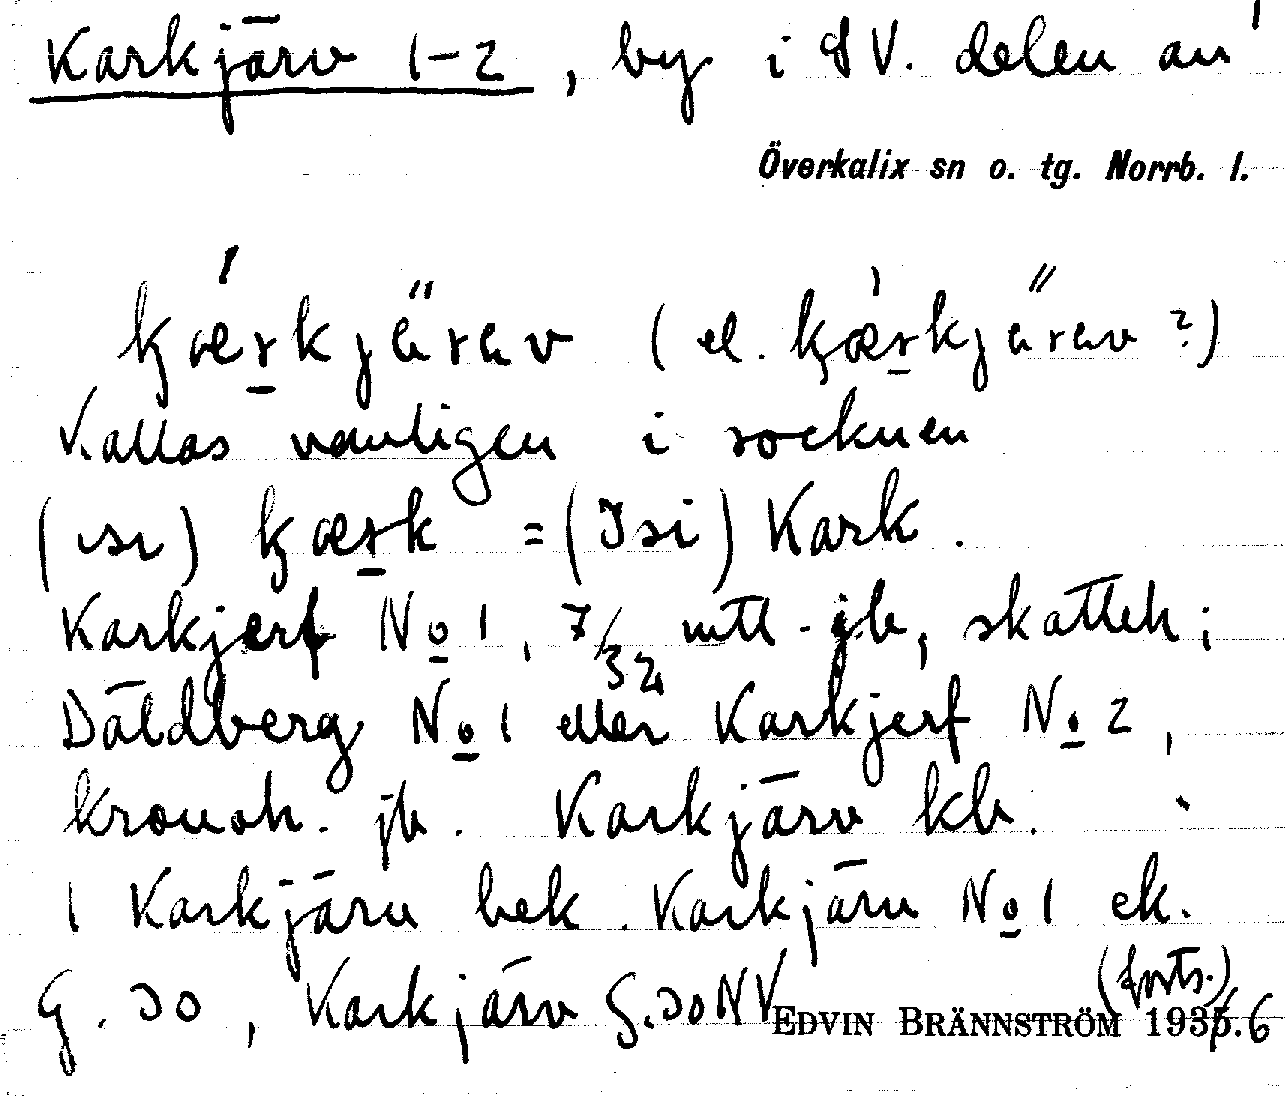 Karkjärv 1-2, by i SV. delen av
Överkalix sn o. tg. Norrb. l.
kærkjärav (el. kærkjärav ?)
Kallas vanligen i socknen
(isi) kærk = (Isi) Kark.
Karkjerf No 1, 7/32 mtl. jb, skatteh;
Däldberg No 1 eller Karkjerf No 2,
kronoh. jb. Karkjärv kb.
1 Karkjärv bek. Karkjärv No 1 ek.
G. 30, Karkjärv G. 30 NV
(forts.)
EDVIN BRÄNNSTRÖM 1935.6